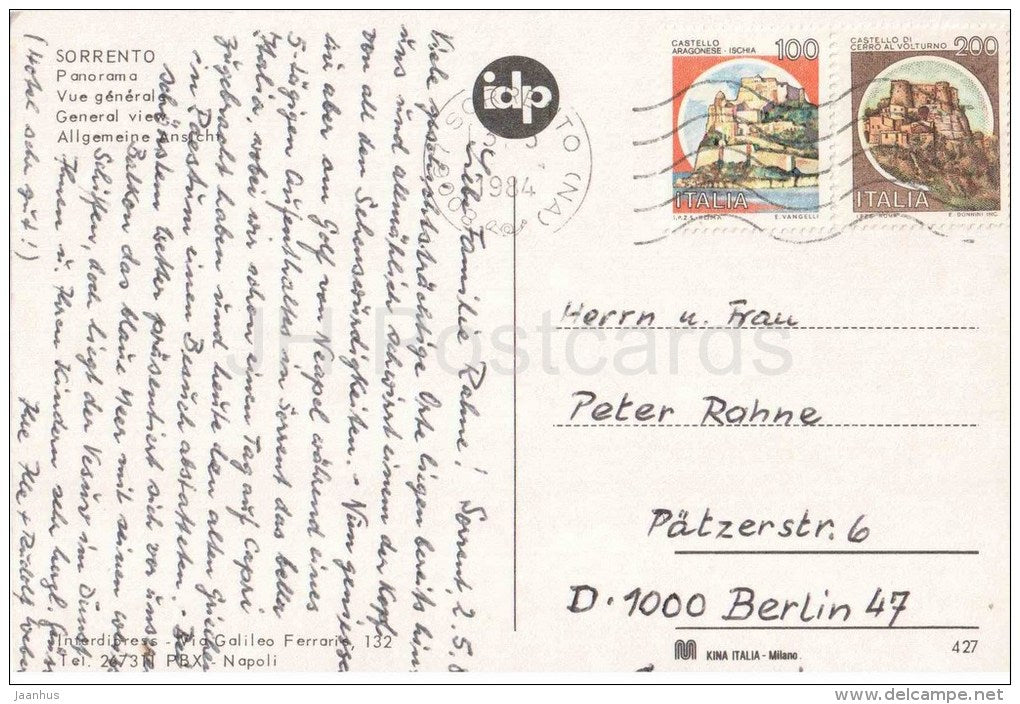 SORRENTO
Panorama
Vue générale
General view
Allgemeine Ansicht
idp
CASTELLO
ARAGONESE - ISCHIA
100
ITALIA
I.P.Z.S. - ROMA
E. VANGELLI
CASTELLO DI
CERRO AL VOLTURNO
200
ITALIA
I.P.Z.S. ROMA
E. DONNINI INC.
SORRENTO (NA)
1984
80067
Liebe Familie Rahne! Sorrent, 2.5.8
Viele geschichtsträchtige Orte liegen bereits hinter
uns und allmählich schwirrt einem der Kopf
von all den Sehenswürdigkeiten. - Nun geniessen
wir aber am Golf von Neapel während eines
5-tägigen Aufenthaltes in Sorrent das bella
Italia, wobei wir schon einen Tag auf Capri
zugebracht haben und heute den alten Griechen
in Pestum einen Besuch abstatteten. - Bei
schönstem Wetter präsentiert sich vor unserem
Balkon das blaue Meer mit seinen weissen
Schiffen, doch liegt der Vesuv im Dunst.
Ihnen u. Ihren Kindern sehr herzl. Grüsse
Ihre Ilse + Rudolf Weber
(Hotel sehr gut!)
Herrn u. Frau
Peter Rahne
Pätzerstr. 6
D-1000 Berlin 47
Interdipress - Via Galileo Ferraris, 132
Tel. 267311 PBX - Napoli
KINA ITALIA - Milano
427
JH Postcards
jaanhus
www.jhpostcards.com